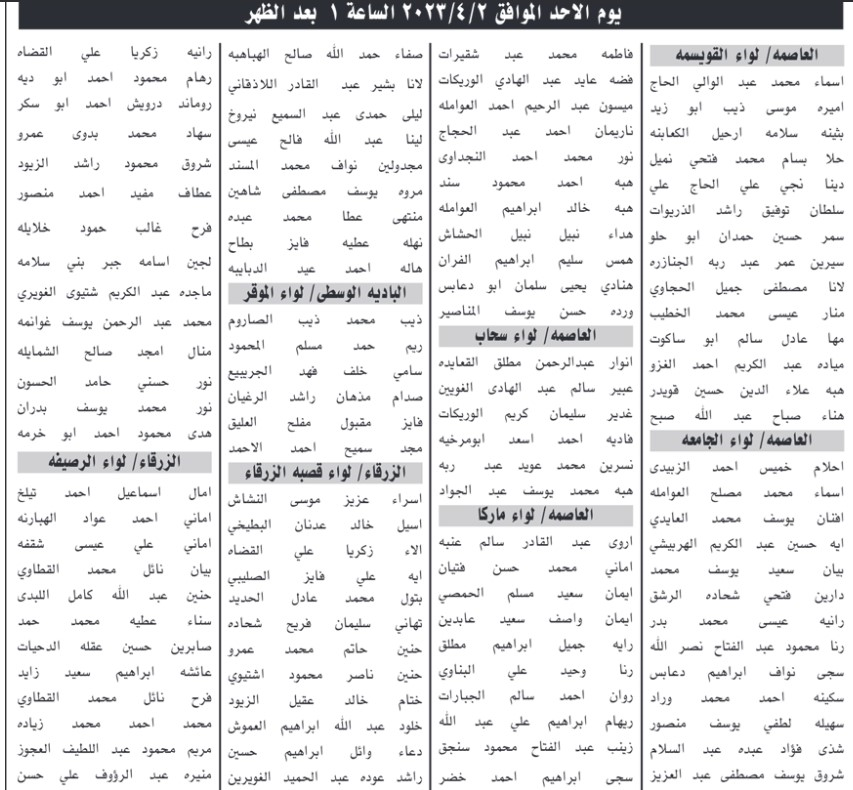 يوم الاحد الموافق ٢٠٢٣/٤/٢ الساعة ١ بعد الظهر
العاصمه/ لواء القويسمه
اسماء محمد عبد الوالي الحاج
اميره موسى ذيب ابو زيد
بثينه سلامه ارحيل الكعابنه
حلا بسام محمد فتحي نميل
دينا نجي علي الحاج علي
سلطان توفيق راشد الذريوات
سمر حسين حمدان ابو حلو
سيرين عمر عبد ربه الجنازره
لانا مصطفى جميل الحجاوي
منار عيسى محمد الخطيب
مها عادل سالم ابو ساكوت
مياده عبد الكريم احمد الغزو
هبه علاء الدين حسين قويدر
هناء صباح عبد الله صبح
العاصمه/ لواء الجامعه
احلام خميس احمد الزبيدى
اسماء محمد مصلح العوامله
افنان يوسف محمد العايدي
ايه حسين عبد الكريم الهربيشي
بيان سعيد يوسف محمد
دارين فتحي شحاده الرشق
رانيه عيسى محمد بدر
رنا محمود عبد الفتاح نصر الله
سجى نواف ابراهيم دعابس
سكينه احمد محمد وراد
سهيله لطفي يوسف منصور
شذى فؤاد عبده عبد السلام
شروق يوسف مصطفى عبد العزيز
فاطمه محمد عبد شقيرات
فضه عايد عبد الهادي الوريكات
ميسون عبد الرحيم احمد العوامله
ناريمان احمد عبد الحجاج
نور محمد احمد النجداوى
هبه احمد محمود سند
هبه خالد ابراهيم العوامله
هداء نبيل نبيل الحشاش
همس سليم ابراهيم الفران
هنادي يحيى سلمان ابو دعابس
ورده حسن يوسف المناصير
العاصمه/ لواء سحاب
انوار عبدالرحمن مطلق القعايده
عبير سالم عبد الهادى الغويين
غدير سليمان كريم الوريكات
فاديه احمد اسعد ابومرخيه
نسرين محمد عويد عبد ربه
هبه محمد يوسف عبد الجواد
العاصمه/ لواء ماركا
اروى عبد القادر سالم عنبه
اماني محمد حسن فتيان
ايمان سعيد مسلم الحمصي
ايمان واصف سعيد عابدين
رايه جميل ابراهيم مطلق
رنا وحيد علي البناوي
روان احمد سالم الجبارات
ريهام ابراهيم علي عبد الله
زينب عبد الفتاح محمود سنجق
سجى ابراهيم احمد خضر
صفاء حمد الله صالح الهباهبه
لانا بشير عبد القادر اللاذقاني
ليلى حمدى عبد السميع نيروخ
لينا عبد الله فالح عيسى
مجدولين نواف محمد المسند
مروه يوسف مصطفى شاهين
منتهى عطا محمد عبده
نهله عطيه فايز بطاح
هاله احمد عيد الدبايبه
الباديه الوسطى/ لواء الموقر
ذيب محمد ذيب الصاروم
ريم حمد مسلم المحمود
سامي خلف فهد الجريبيع
صدام مذهان راشد الرغيان
فايز مقبول مفلح العليق
مجد سميح احمد الاحمد
الزرقاء/ لواء قصبه الزرقاء
اسراء عزيز موسى النشاش
اسيل خالد عدنان البطيخي
الاء زكريا علي القضاه
ايه علي فايز الصليبي
بتول محمد عادل الحديد
تهاني سليمان فريح شحاده
حنين حاتم محمد عمرو
حنين ناصر محمود اشتيوي
ختام خالد عقيل الزيود
خلود عبد الله ابراهيم العموش
دعاء وائل ابراهيم حسين
راشد عوده عبد الحميد الغويرين
رانيه زكريا علي القضاه
رهام محمود احمد ابو ديه
روماند درويش احمد ابو سكر
سهاد محمد بدوى عمرو
شروق محمود راشد الزيود
عطاف مفيد احمد منصور
فرح غالب حمود خلايله
لجين اسامه جبر بني سلامه
ماجده عبد الكريم شتيوى الغويري
محمد عبد الرحمن يوسف غوانمه
منال امجد صالح الشمايله
نور حسني حامد الحسون
نور محمد يوسف بدران
هدى محمود احمد ابو خرمه
الزرقاء/ لواء الرصيفه
امال اسماعيل احمد تيلخ
اماني احمد عواد الهبارنه
اماني علي عيسى شقفه
بيان نائل محمد القطاوي
حنين عبد الله كامل اللبدى
سناء عطيه محمد حمد
صابرين حسين عقله الدحيات
عائشه ابراهيم سعيد زايد
فرح نائل محمد القطاوي
محمد احمد محمد زياده
مريم محمود عبد اللطيف العجوز
منيره عبد الرؤوف علي حسن